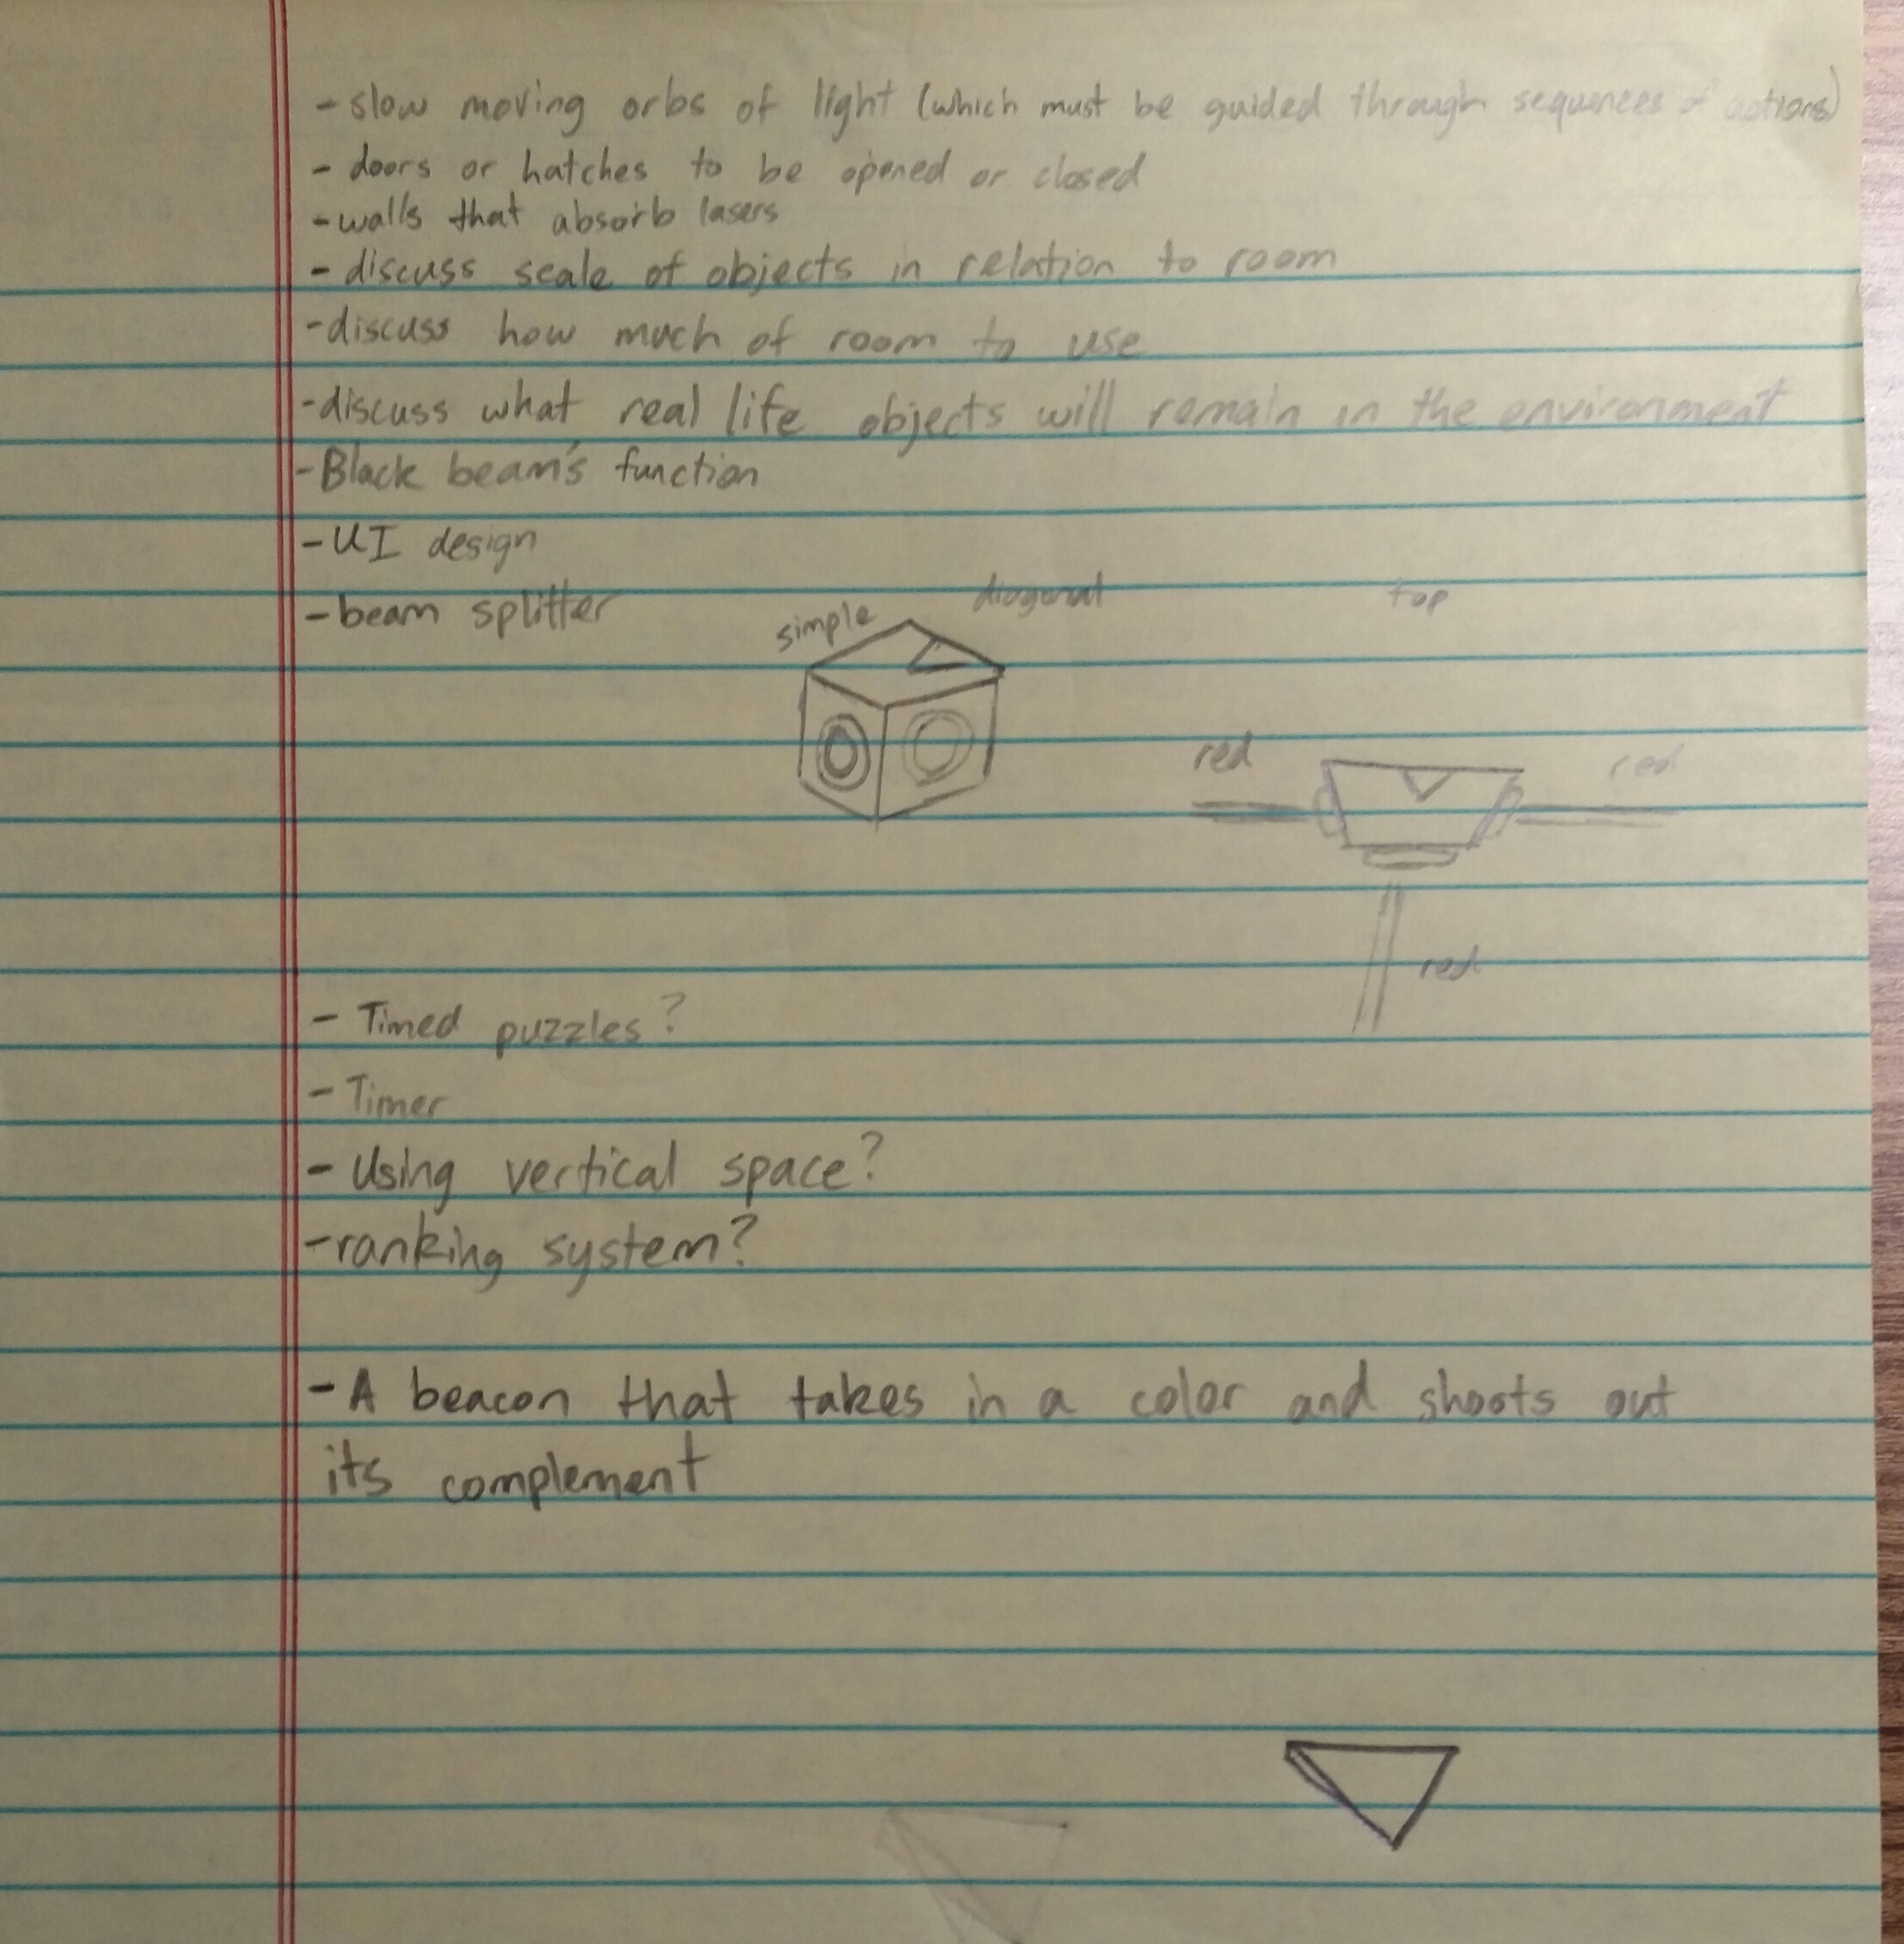 - slow moving orbs of light (which must be guided through sequences of actions)
- doors or hatches to be opened or closed
- walls that absorb lasers
- discuss scale of objects in relation to room
- discuss how much of room to use
- discuss what real life objects will remain in the environment
- Black beam's function
- UI design
- beam splitter
simple
diagonal
top
red
red
red
- Timed puzzles?
- Timer
- Using vertical space?
- ranking system?
- A beacon that takes in a color and shoots out
its complement